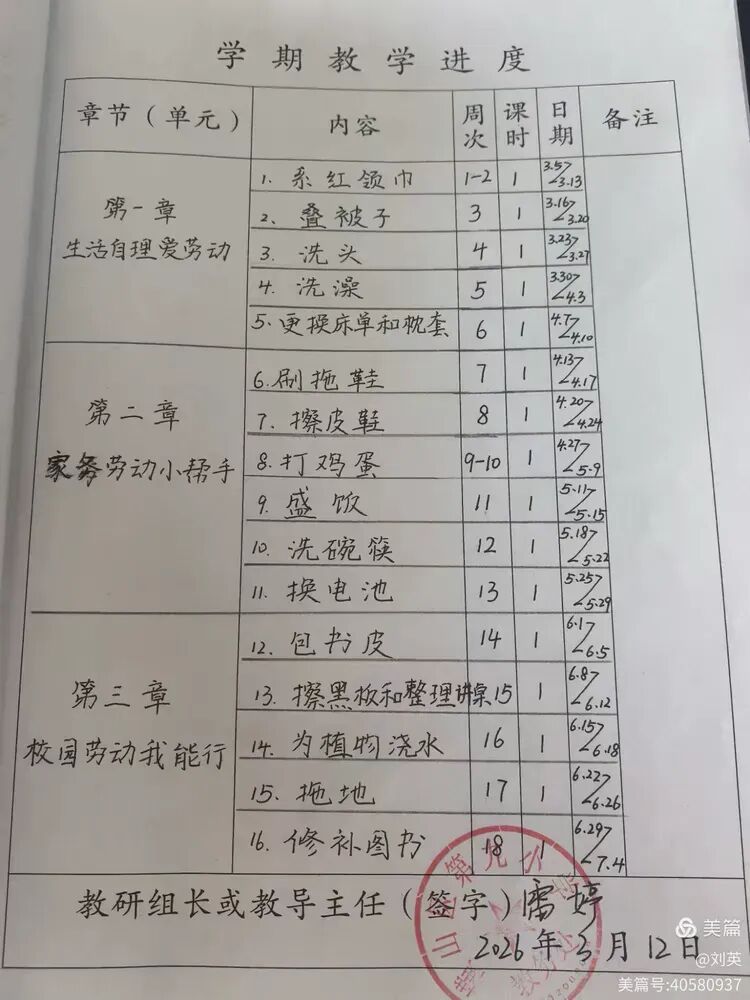 学期教学进度
章节（单元） 内容 周次 课时 日期 备注
第一章
生活自理爱劳动
1. 系红领巾 1-2 1 3.5 3.13
2. 叠被子 3 1 3.16 3.20
3. 洗头 4 1 3.23 3.27
4. 洗澡 5 1 3.30 4.3
5. 更换床单和枕套 6 1 4.7 4.10
第二章
家务劳动小帮手
6. 刷拖鞋 7 1 4.13 4.17
7. 擦皮鞋 8 1 4.20 4.24
8. 打鸡蛋 9-10 1 4.27 5.9
9. 盛饭 11 1 5.11 5.15
10. 洗碗筷 12 1 5.18 5.22
11. 换电池 13 1 5.25 5.29
第三章
校园劳动我能行
12. 包书皮 14 1 6.1 6.5
13. 擦黑板和整理讲桌 15 1 6.8 6.12
14. 为植物浇水 16 1 6.15 6.18
15. 拖地 17 1 6.22 6.26
16. 修补图书 18 1 6.29 7.4
教研组长或教导主任（签字）雷婷
2026年3月12日
教务处
美篇
@刘英
美篇号:40580937